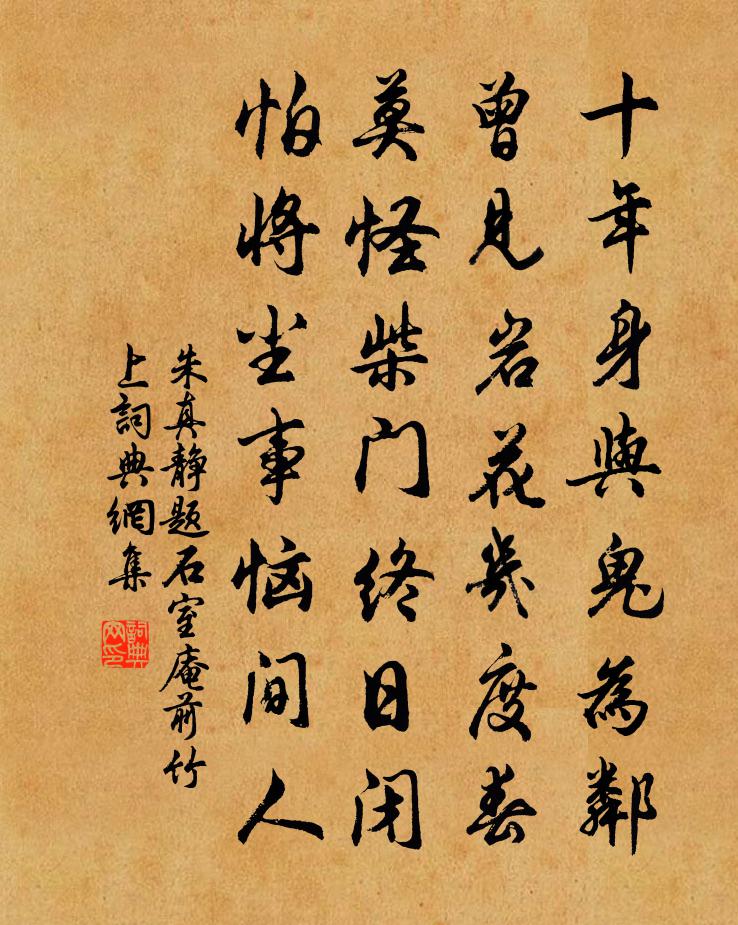 十年身與鬼為鄰
曾見岩花幾度春
莫怪柴门終日闭
怕将尘事恼间人
朱真静题石室庵前竹
上詞典網集
詞典
网印